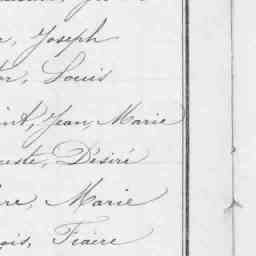 r, Joseph
or, Louis
int, Jean, Marie
uste, Désiré
re, Marie
ois, Fiacre